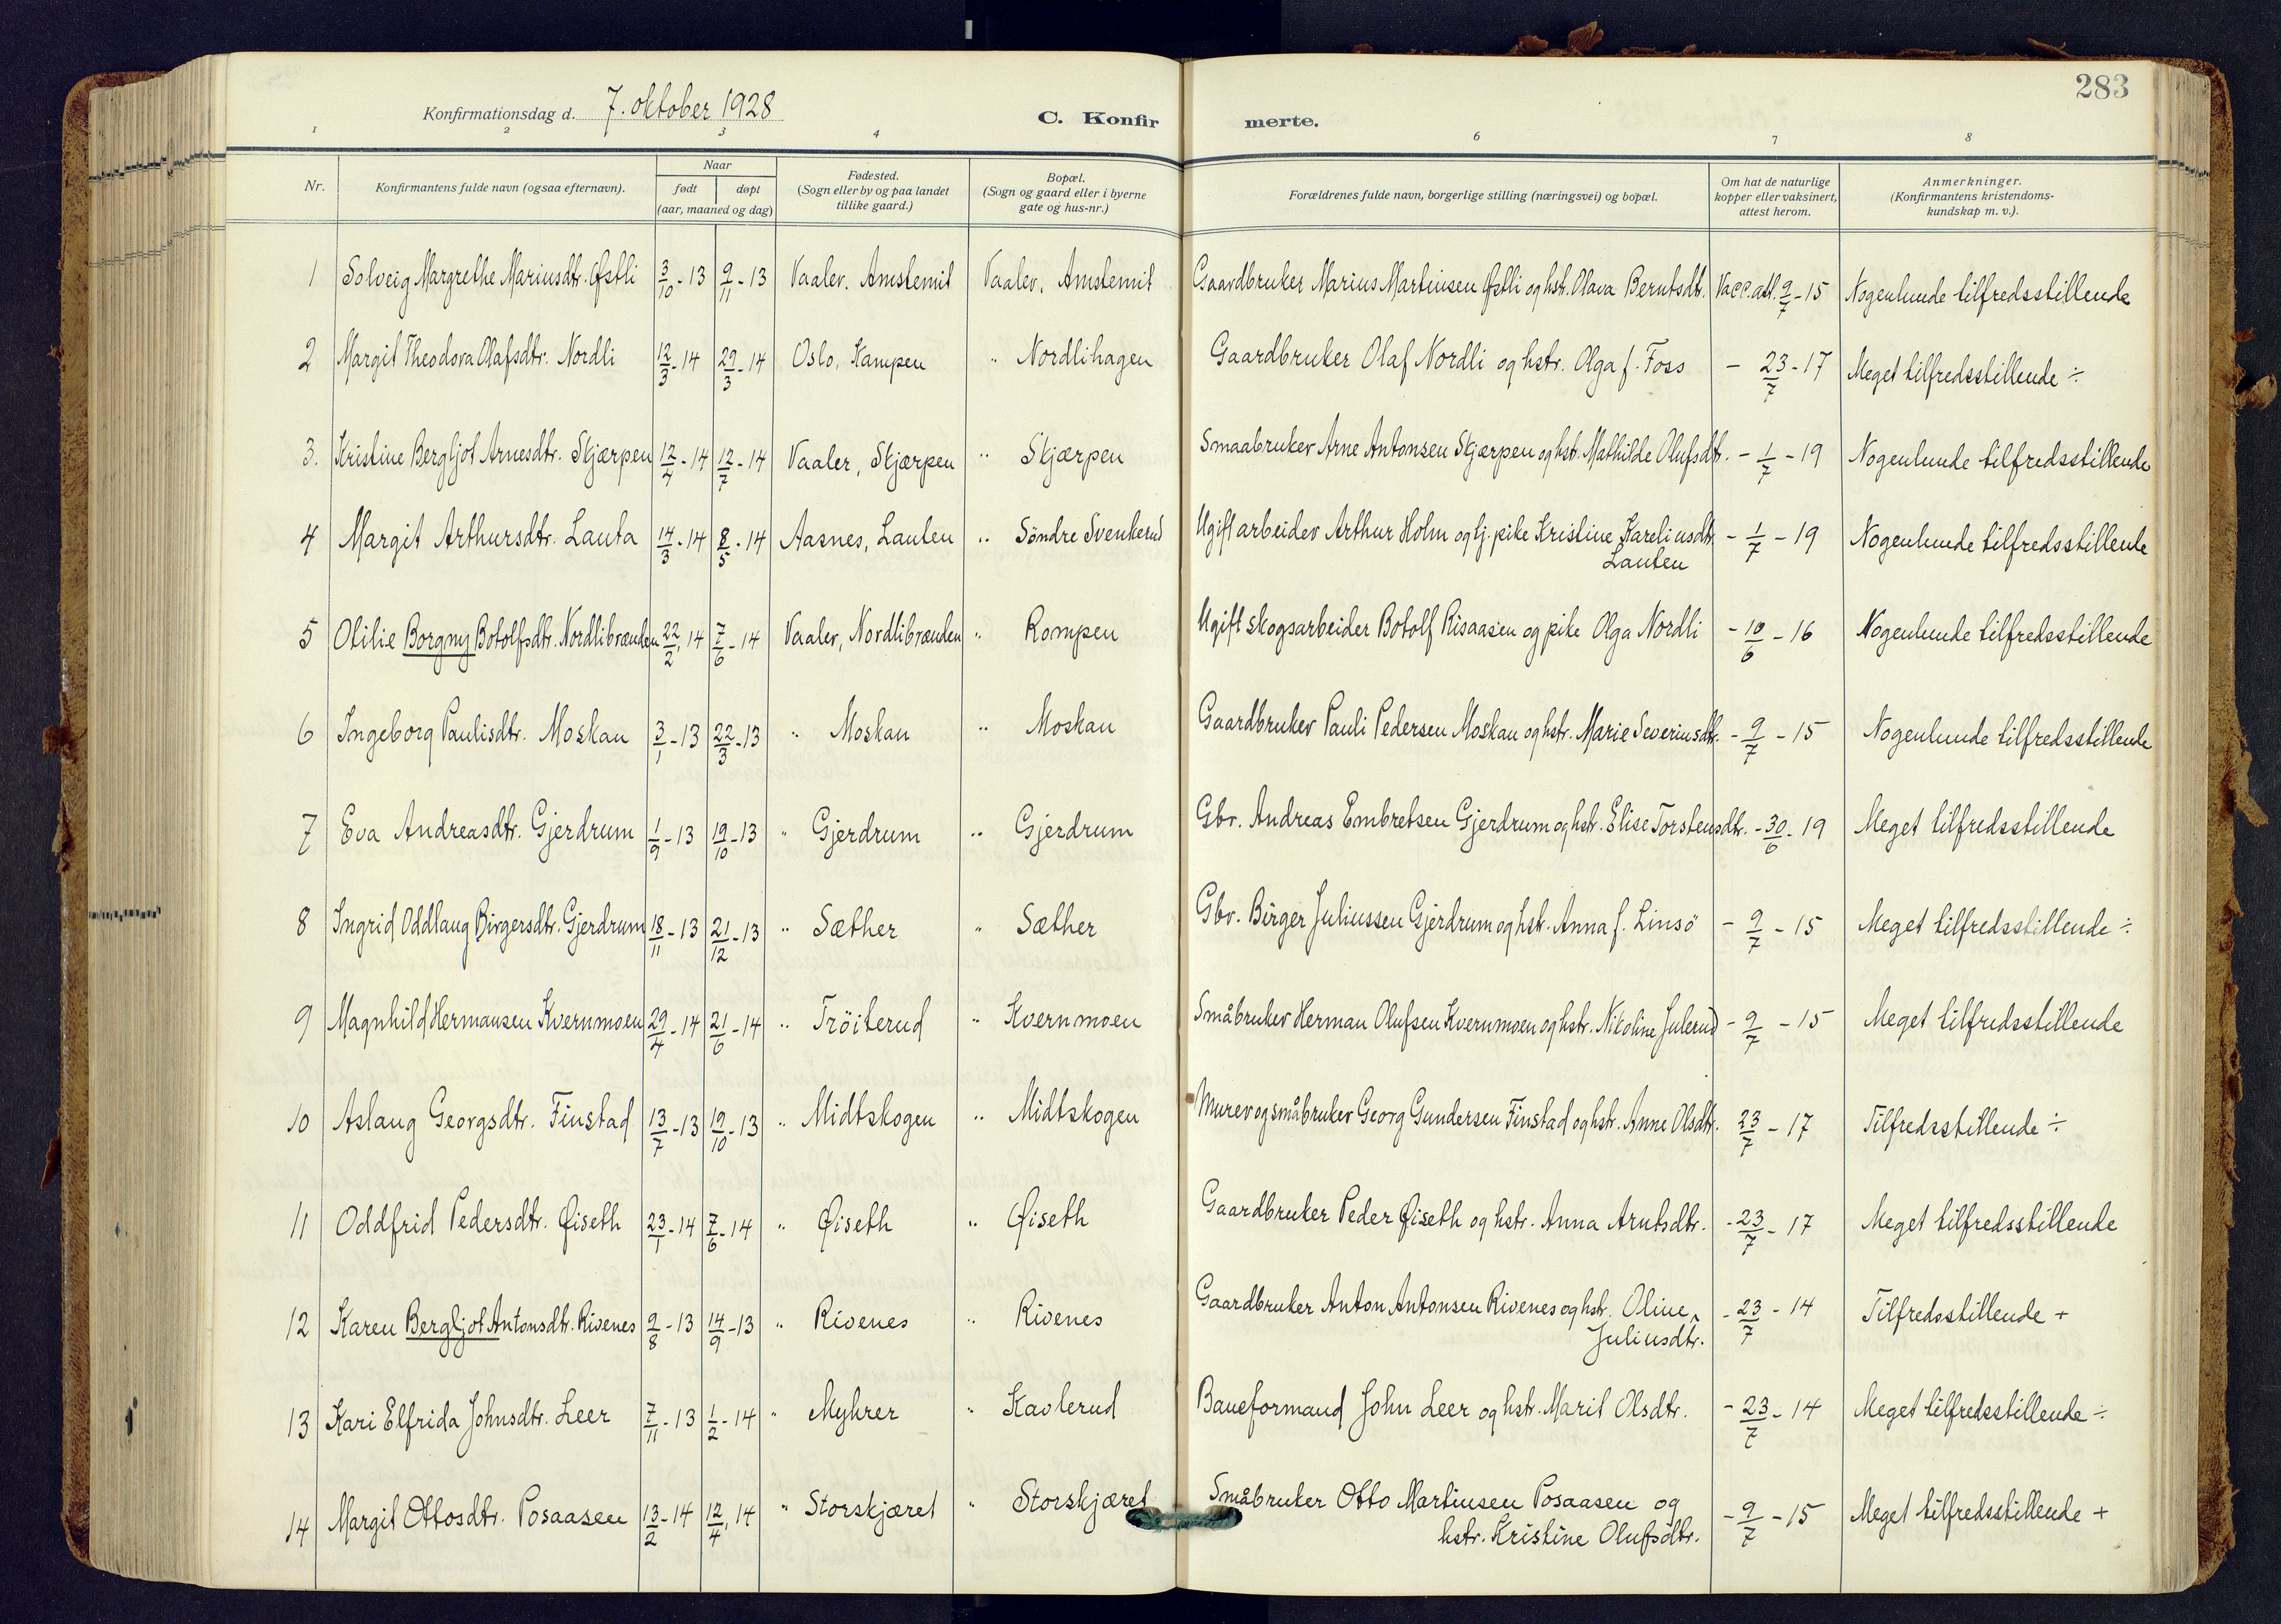 283
Konfirmationsdag d. 7. oktober 1928 C. Konfir merte.
1 2 3 4 6 7 8
Nr. Konfirmantens fulde navn (ogsaa efternavn). Naar født døpt (aar, maaned og dag) Fødested. (Sogn eller by og paa landet tillike gaard.) Bopæl. (Sogn og gaard eller i byerne gate og hus-nr.) Forældrenes fulde navn, borgerlige stilling (næringsvei) og bopæl. Om hat de naturlige kopper eller vaksinert, attest herom. Anmerkninger. (Konfirmantens kristendoms-kundskap m. v.).
1 Solveig Margrethe Mariusdtr. Østli 3/10-13 9/11-13 Vaaler. Amstemit Vaaler, Amstemit Gaardbruker Marius Martinsen Østli og hstr. Olava Berntsdtr. Vacc.att. 9/7-15 Nogenlunde tilfredsstillende
2 Margit Theodora Olafsdtr. Nordli 12/3-14 29/3-14 Oslo, Kampen " Nordlihagen Gaardbruker Olaf Nordli og hstr. Olga f. Foss - 23/7-17 Meget tilfredsstillende ÷
3. Kristine Bergljot Arnesdtr. Skjærpen 12/4-14 12/7-14 Vaaler, Skjærpen " Skjærpen Smaabruker Arne Antonsen Skjærpen og hstr. Mathilde Olufsdtr. - 1/7-19 Nogenlunde tilfredsstillende
4 Margit Arthursdtr. Lauta 14/3-14 8/5-14 Aasnes, Lauten " Søndre Svenkerud Ugift arbeider Arthur Holm og tj. pike Kristine Kareliusdtr. - 1/7-19 Nogenlunde tilfredsstillende
Lauten
5 Otilie Borgny Botolfsdtr. Nordlibrænden 22/2, 14 7/6-14 Vaaler, Nordlibrænden " Rompen Ugift skogsarbeider Botolf Risaasen og pike Olga Nordli - 10/6-16 Nogenlunde tilfredsstillende
6 Ingeborg Paulisdtr. Moskau 3/1-13 22/3-13 " Moskau " Moskau Gaardbruker Pauli Pedersen Moskau og hstr. Marie Severinsdtr. - 9/7-15 Nogenlunde tilfredsstillende
7 Eva Andreasdtr. Gjerdrum 1/9-13 19/10-13 " Gjerdrum " Gjerdrum Gbr. Andreas Embretsen Gjerdrum og hstr. Elise Torstensdtr. - 30/6-19 Meget tilfredsstillende
8 Ingrid Oddlaug Birgersdtr. Gjerdrum 18/11-13 21/12-13 " Sæther " Sæther Gbr. Birger Juliussen Gjerdrum og hstr. Anna f. Linsö - 9/7-15 Meget tilfredsstillende ÷
9 Magnhild Hermansen Kvernmoen 29/4-14 21/6-14 " Tröiterud " Kvernmoen Småbruker Herman Olufsen Kvernmoen og hstr. Nikoline Julerud - 9/7-15 Meget tilfredsstillende
10 Aslaug Georgsdtr. Finstad 13/7-13 19/10-13 " Midtskogen " Midtskogen Murer og småbruker Georg Gundersen Finstad og hstr. Anne Olsdtr. 23/7-17 Tilfredsstillende ÷
11 Oddfrid Pedersdtr. Øiseth 23/1-14 7/6-14 " Øiseth " Øiseth Gaardbruker Peder Øiseth og hstr. Anna Arntsdtr. - 23/7-17 Meget tilfredsstillende
12 Karen Bergljot Antonsdtr. Rivenes 9/8-13 14/9-13 " Rivenes " Rivenes Gaardbruker Anton Antonsen Rivenes og hstr. Oline - 23/7-14 Tilfredsstillende +
Juliusdtr.
13 Kari Elfrida Johnsdtr. Leer 7/11-13 1/2-14 " Myhrer " Kavlerud Baneformand John Leer og hstr. Marit Olsdtr. - 23/7-14 Meget tilfredsstillende ÷
14 Margit Ottosdtr. Posaasen 13/2-14 12/4, 14 " Storskjæret " Storskjæret Småbruker Otto Martinsen Posaasen og - 9/7-15 Meget tilfredsstillende +
hstr. Kristine Olufsdtr.